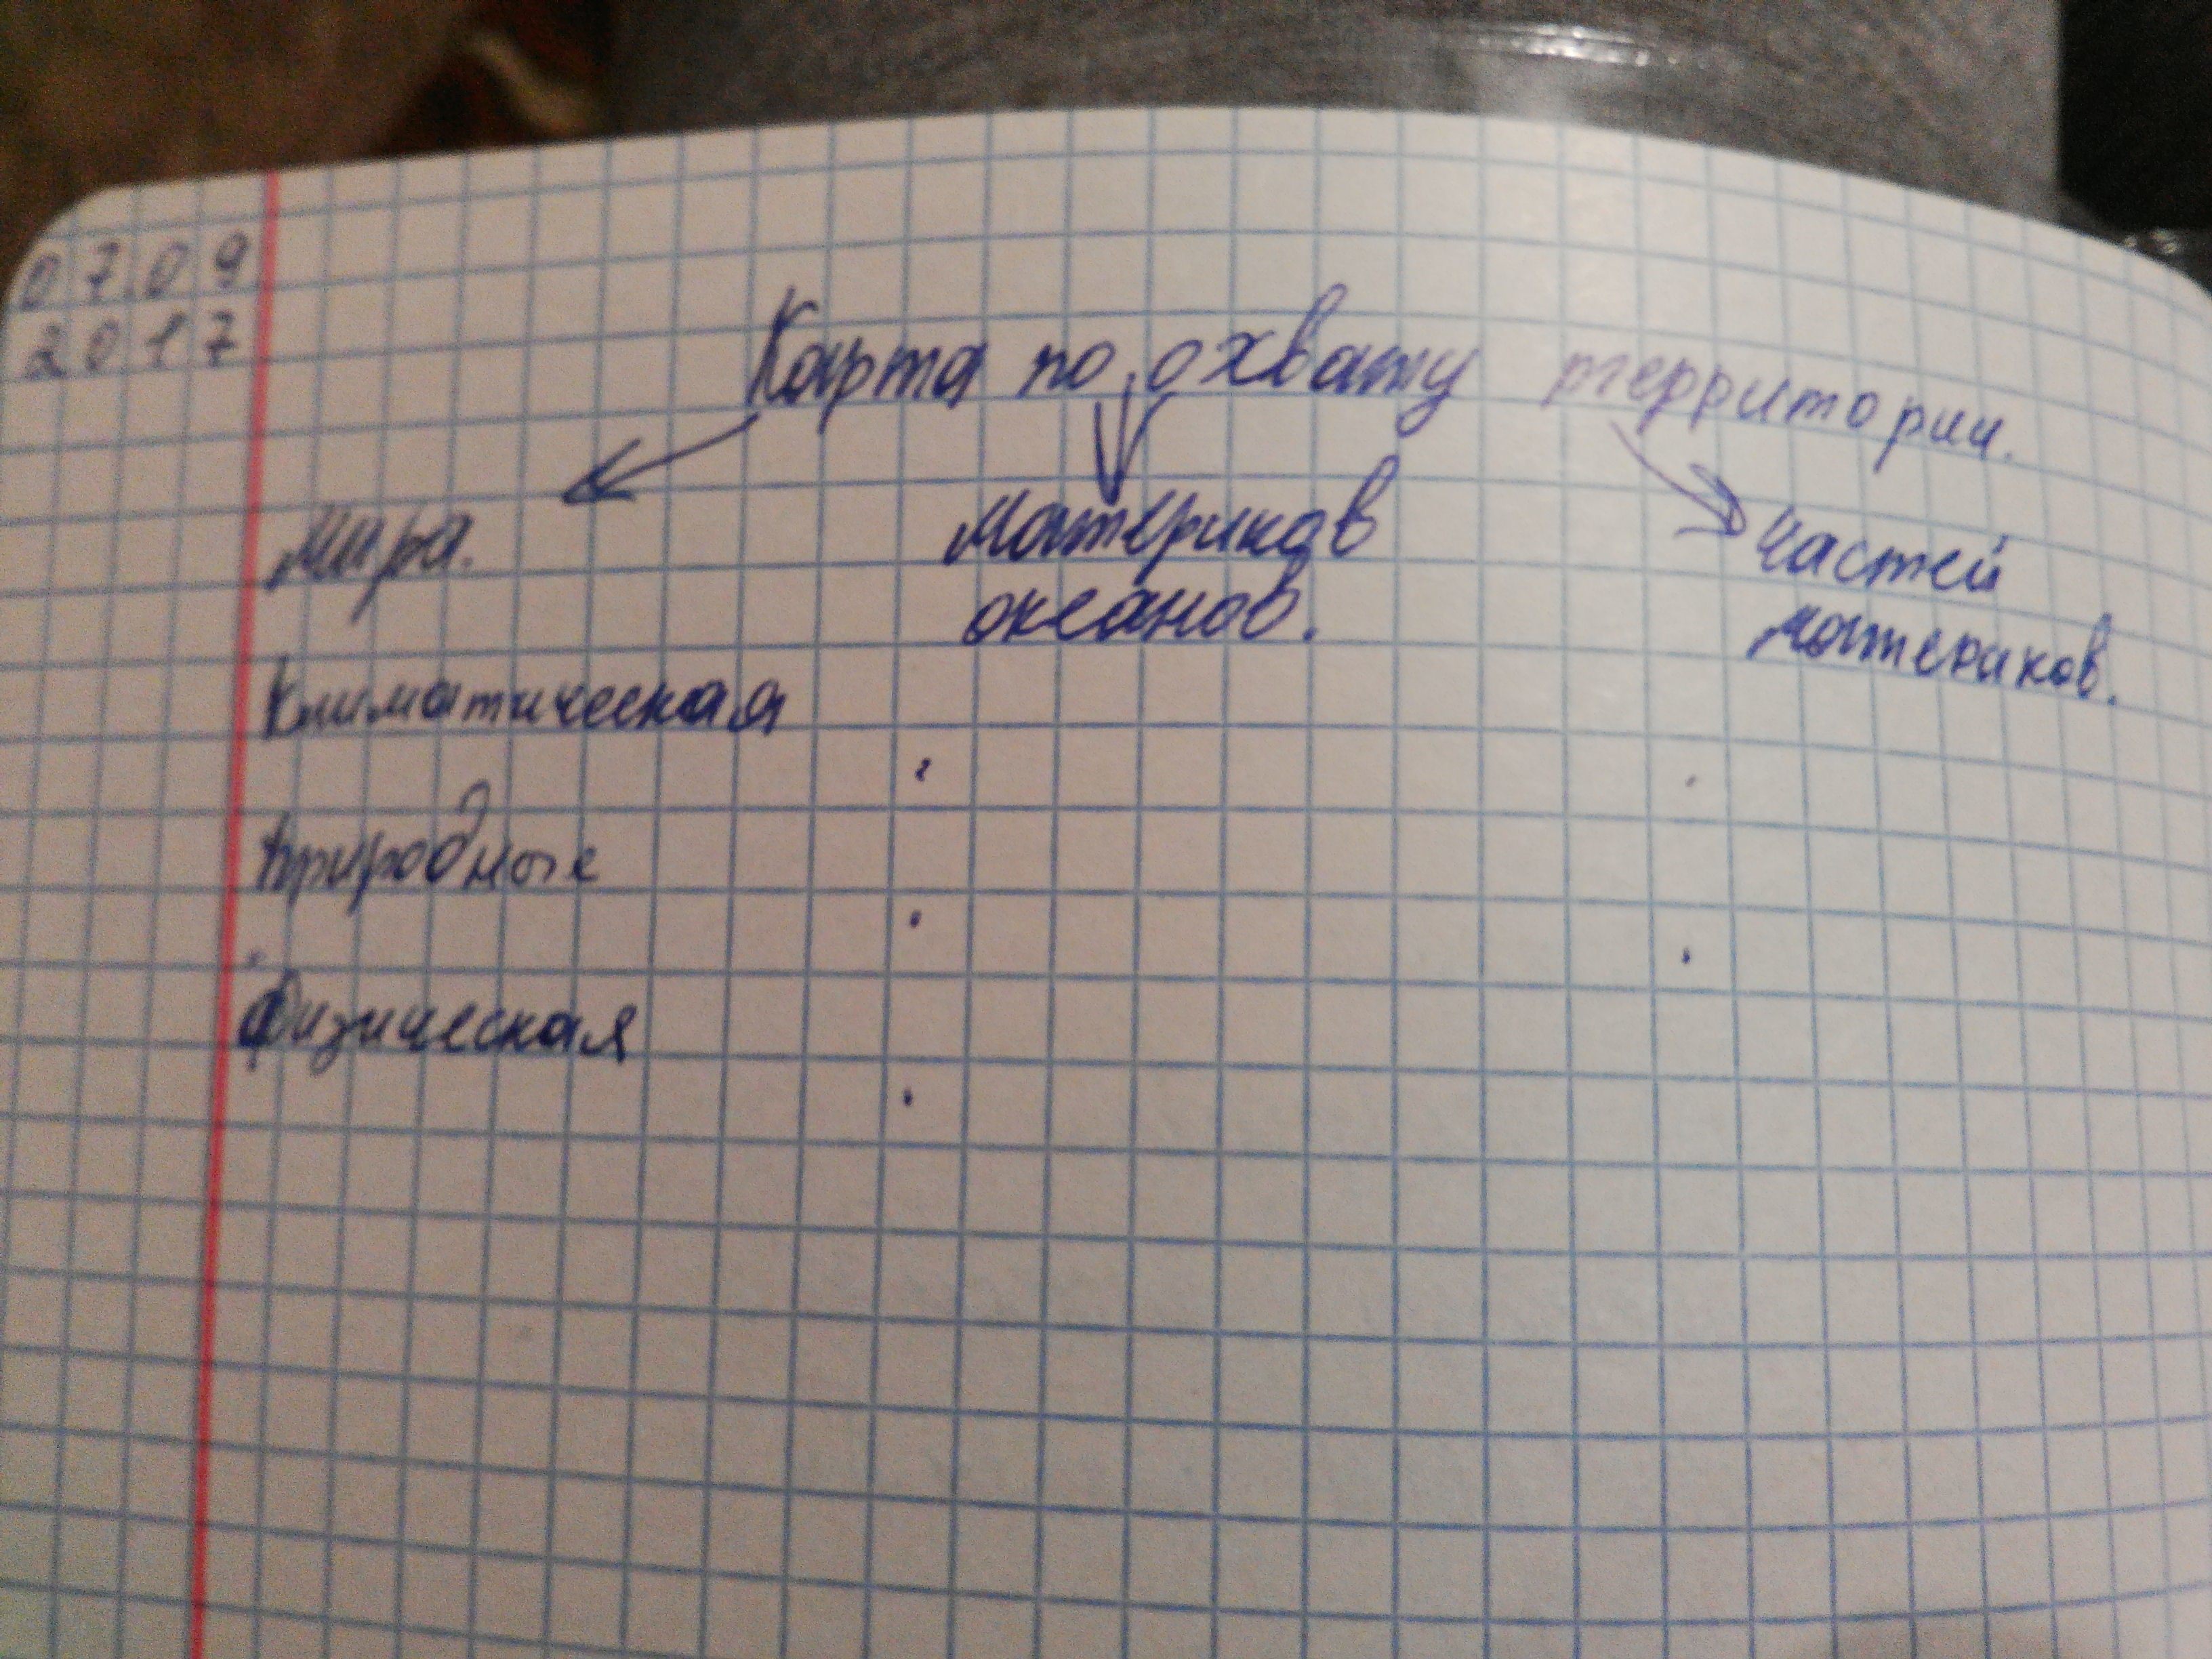 07.09
2017
Карта по охвату территории.
Мира.
Материков
океанов.
Частей
материков.
Климатическая
природные
Физическая